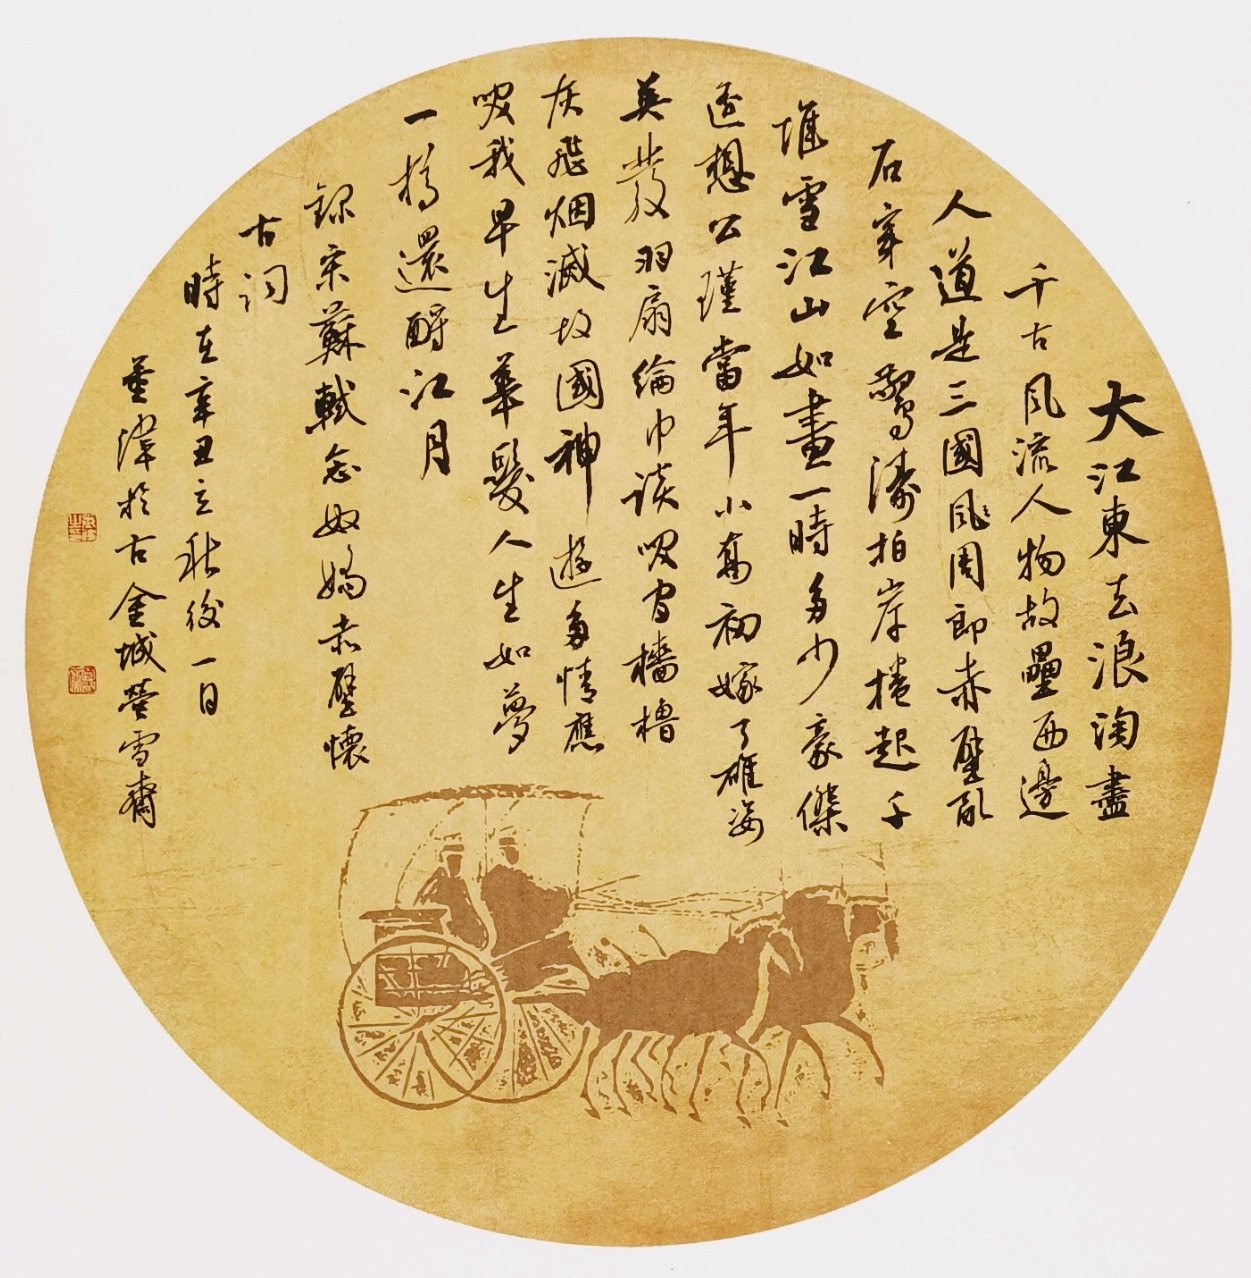 大江東去浪淘盡
千古風流人物故壘西邊
人道是三國風周郎赤壁亂
石穿空驚濤拍岸捲起千
堆雪江山如畫一時多少豪傑
遥想公瑾當年小喬初嫁了雄姿
英發羽扇綸巾談笑間檣櫓
灰飛烟滅故國神遊多情應
笑我早生華髮人生如夢
一樽還酹江月
錄宋蘇軾念奴嬌赤壁懷
古詞
時在辛丑立秋後一日
董於古金城螢雪齋